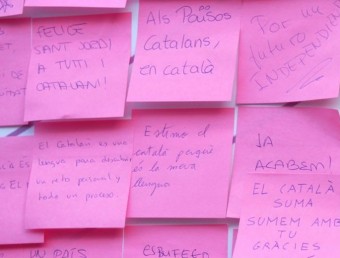 FELICE
SANT JORDI
A TUTTI I
CATALANI!
Als Països
Catalans,
en català
Por un
futuro
INDEPENDIENTE
El Catalán es una
lengua para
un reto personal y
todo un proceso.
Estimo el
català perquè
és la meva
llengua
JA
ACABEM!
EL CATALÀ
SUMA
SUMEM AMB
TU
GRÀCIES
UN PAÍS